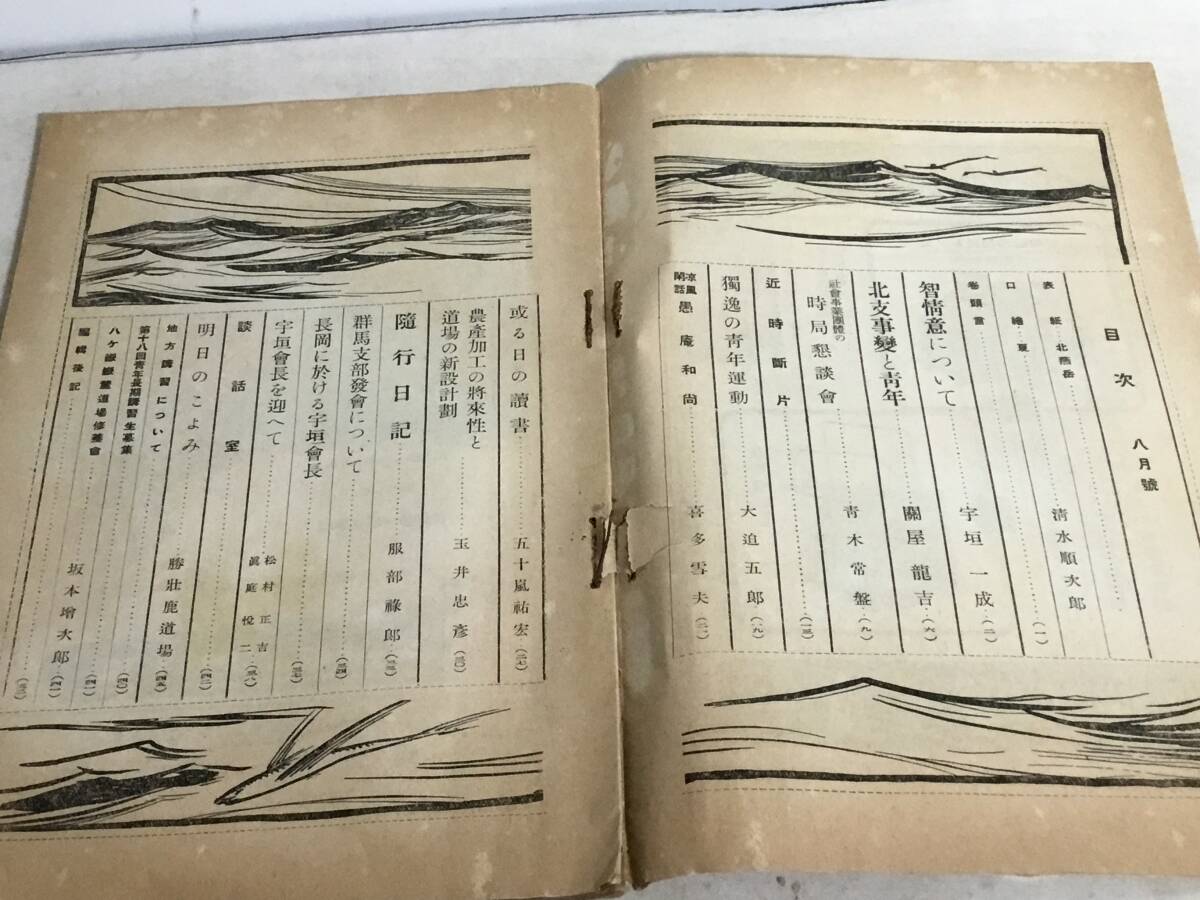 目次 八月號
表紙・北燕岳……清水順次郎
口繪・夏……
卷頭言……(一)
智情意について……宇垣一成…(二)
北支事變と青年……關屋龍吉…(六)
社會事業團體の時局懇談會……青木常盤…(九)
近時斷片……(一三)
獨逸の青年運動……大迫五郎…(一九)
凉風閑話 愚庵和尚……喜多雪夫…(二一)
或る日の讀書……五十嵐祐宏…(二七)
農產加工の將來性と道場の新設計劃……玉井忠彥…(三〇)
隨行日記……服部祿郎…(三三)
群馬支部發會について……(三四)
長岡に於ける宇垣會長……(三七)
宇垣會長を迎へて……松村正吉 眞庭悅二…(三八)
談話室……(四二)
明日のこよみ……勝壯鹿道場…(四五)
地方講習について……(四〇)
第十八回青年長期講習生募集……(四一)
八ケ嶽嶽麓道場修養會……(四一)
編輯後記……坂本增次郎